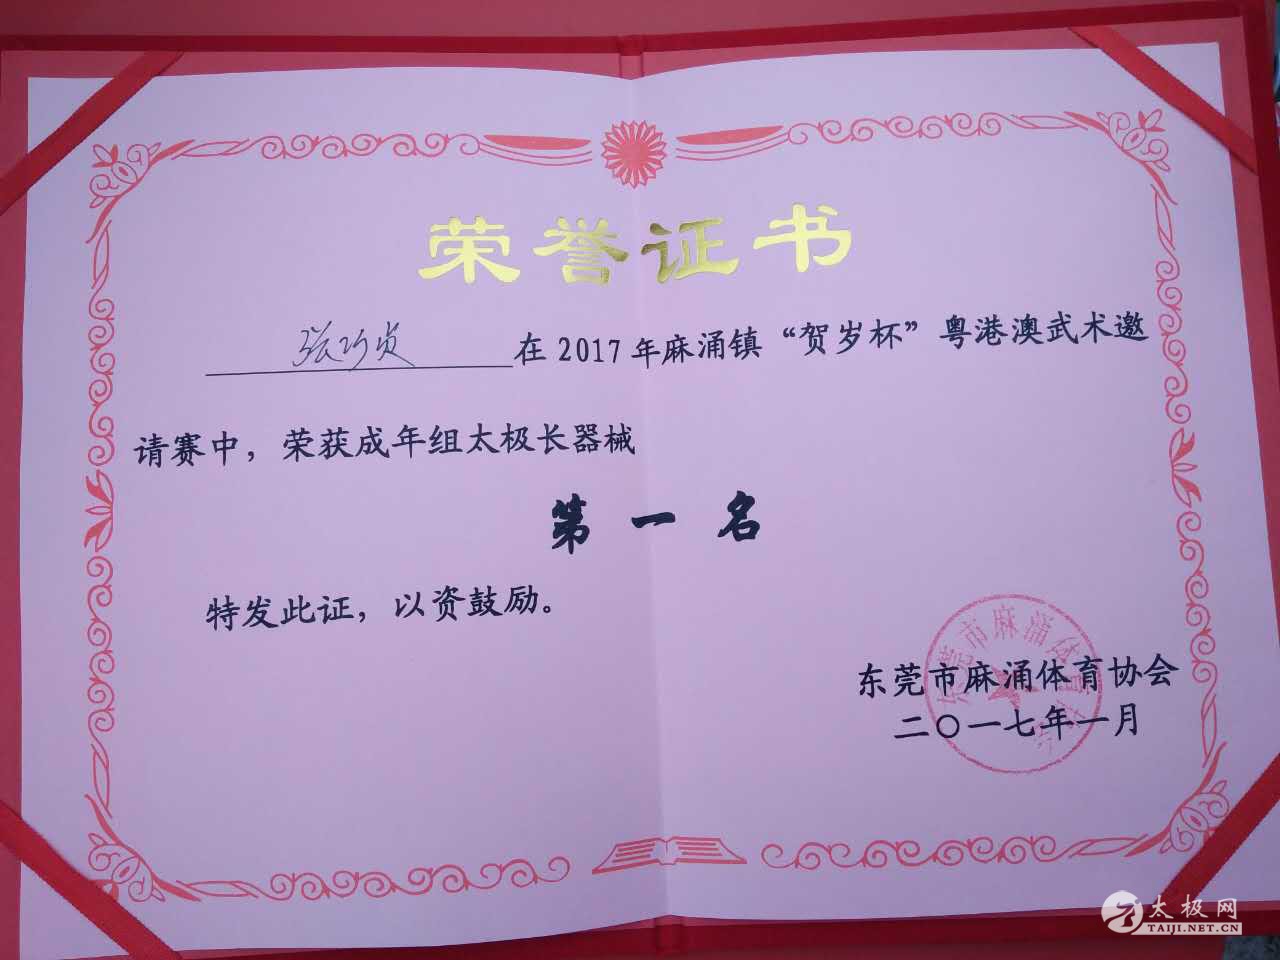 荣誉证书
张巧贞 在2017年麻涌镇“贺岁杯”粤港澳武术邀
请赛中，荣获成年组太极长器械
第一名
特发此证，以资鼓励。
东莞市麻涌体育协会
东莞市麻涌体育协会
二〇一七年一月
太极网
TAIJI.NET.CN